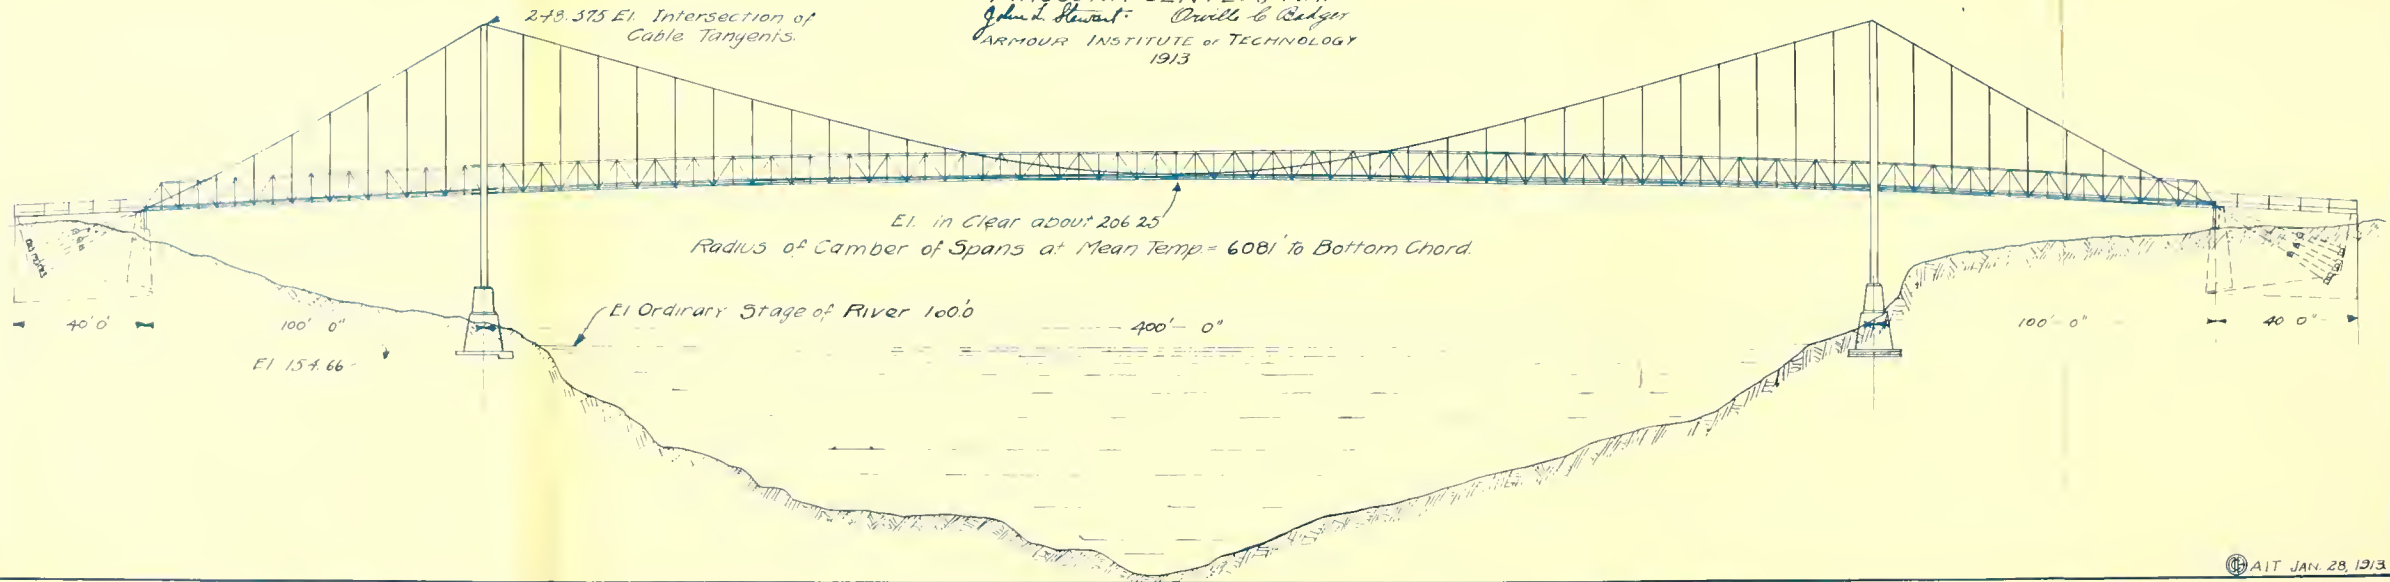 248.575 El. Intersection of
Cable Tangents.
John L. Stewart. Orville C Badger
ARMOUR INSTITUTE OF TECHNOLOGY
1913
El. in Clear about 206.25
Radius of Camber of Spans at Mean Temp. = 6081' To Bottom Chord.
El Ordinary Stage of River 100.'0
40' 0"
100' 0"
400' - 0"
100' - 0"
40' 0"
El 154.66
AIT JAN. 28, 1913